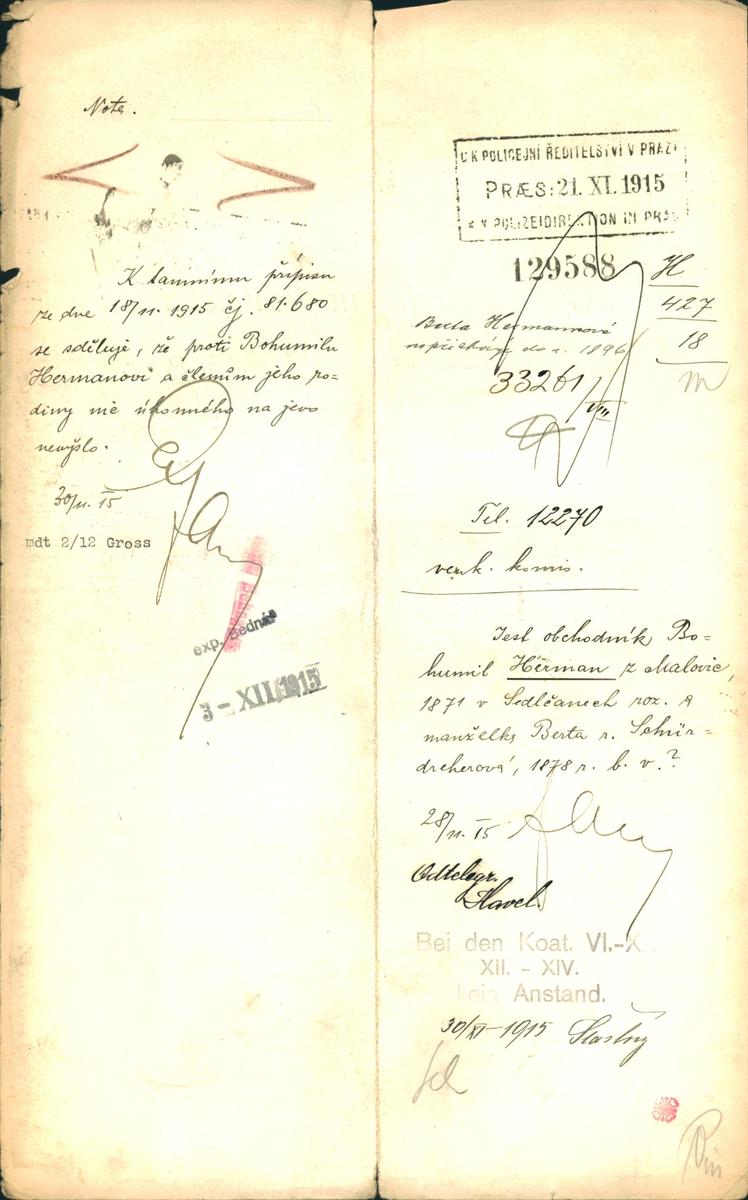 Nota.
K tamnímu přípisu
ze dne 18/11. 1915 čj. 81.680
se sděluje, že proti Bohumilu
Hermanovi a členům jeho ro-
diny nic úhonného na jevo
nevyšlo.
30/11. 15
mdt 2/12 Gross
exp. Bednář
3 - XII. 1915
C.K. POLICEJNÍ ŘEDITELSTVÍ V PRAZE
PRÆS: 21. XI. 1915
K.K. POLIZEIDIREKTION IN PRAG
129588
H
427
18
Berta Hermannová
nepřichází do r. 1896
33261/VIII
Tel. 12270
venk. komis.
Jest obchodník Bo-
humil Heřman z Malovic,
1871 v Sedlčanech roz. a
manželka Berta r. Schür-
dreherová, 1878 r. b. v.?
28/11. 15
Odtelegr.
Havel.
Bei den Koat. VI.-X
XII. - XIV.
kein Anstand.
30/XI 1915 Šťastný